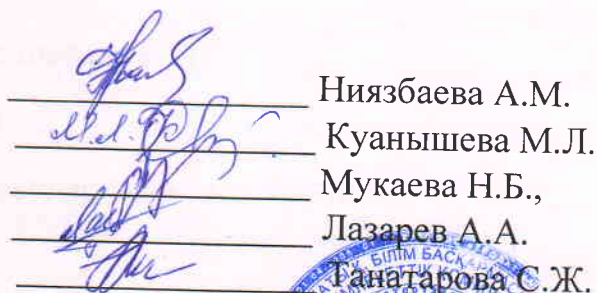 Ниязбаева А.М.
Куанышева М.Л.
Мукаева Н.Б.,
Лазарев А.А.
Танатарова С.Ж.
БІЛІМ БАСҚАР